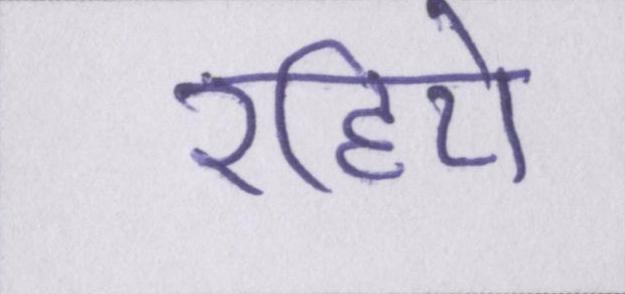 रहिये